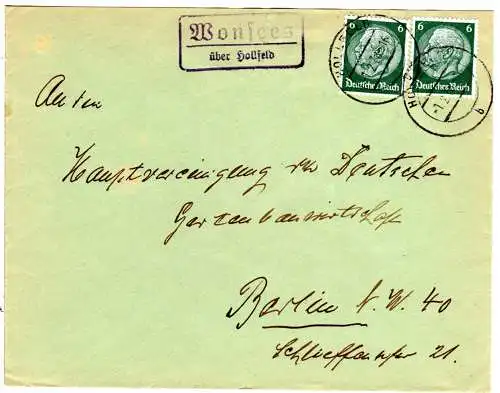 Wonsees
über Hollfeld
6 6 6 6
Deutsches Reich Deutsches Reich
An den
Hauptvereinigung der Deutschen
Gartenbauwirtschaft
Berlin N.W. 40
Schlieffenufer 21.